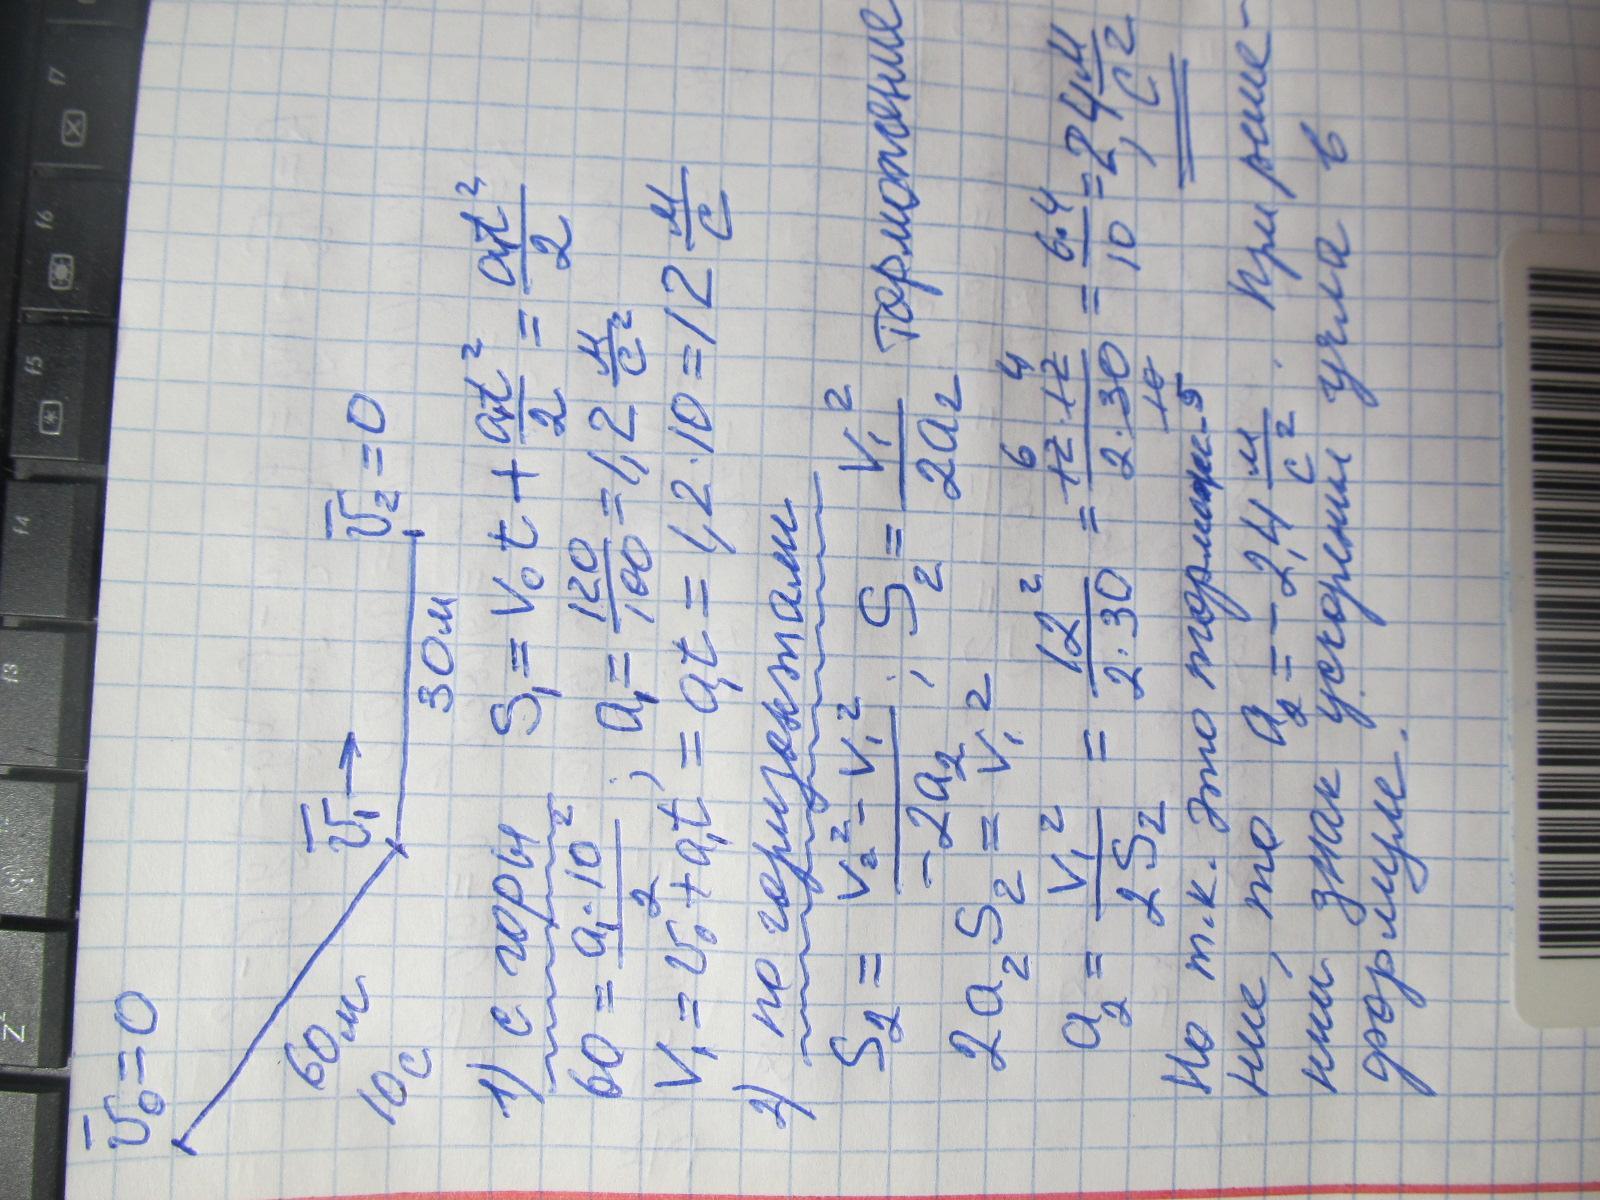 v̅₀=0
60м
10с
v̅₁ →
30м
v̅₂=0
1) с горы S₁=V₀t+a₁t²/2=a₁t²/2
60=a₁·10²/2; a₁=120/100=1,2 м/с²
V₁=v₀+a₁t=a₁t=1,2·10=12 м/с
2) по горизонтали
S₂=(V₂²-V₁²)/(-2a₂); S₂=V₁²/(2a₂) Торможение
2a₂S₂=V₁²
a₂=V₁²/(2S₂)=12²/(2·30)=12·12/(2·30)=6·4/10=2,4 м/с²
6 4
10
5
Но т.к. это торможе-
ние, то a₂=-2,4 м/с². При реше-
нии знак ускорения учла в
формуле.
f7
f6
f5
f4
f3
Z